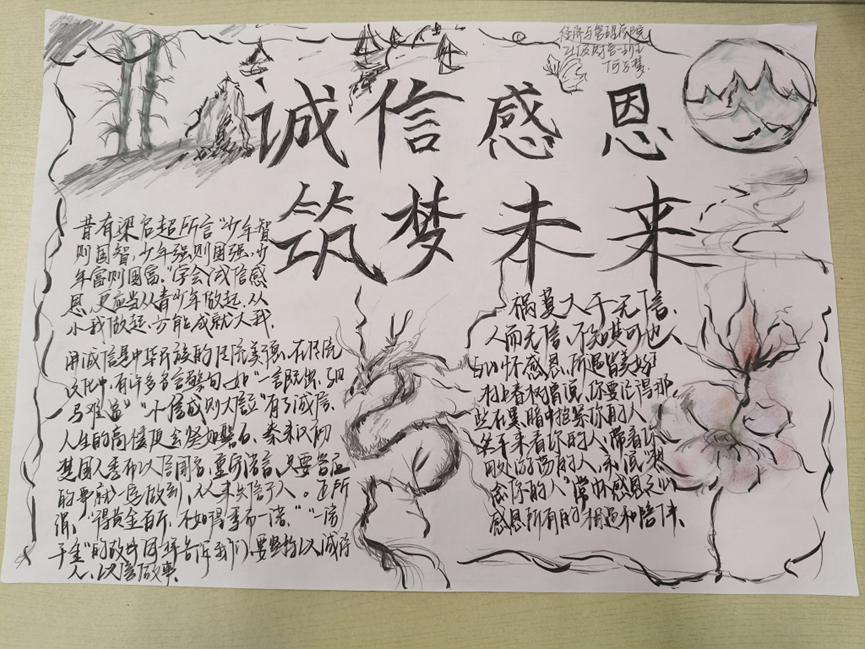 经济与管理学院
诚信感恩
筑梦未来
昔有梁启超所言“少年智
则国智，少年强则国强，少
年富则国富。”学会诚信感
恩，更应当从青少年做起，从
小我做起，方能成就大我。
诚信是中华民族的传统美德，在传统
文化中，有许多名言警句，如“一言既出，驷
马难追”“小信成则大信立”有了诚信，
人生的商值便会坚如磐石。秦末汉初
楚国人季布以信闻名，重于诺言，只要答应
的事就一定做到，从未失信于人。正所
谓，“得黄金百斤，不如得季布一诺。”“一诺
千金”的故事同样告诉我们，要坚持以诚待
人，以信做事。
祸莫大于无信，
人而无信，不知其可也，
与心怀感恩，所遇皆美好
村上春树曾说，你要记得那
些在黑暗中抱紧你的人，
笑的人，陪着你
的人，说“想
念你的人”常怀感恩之心
感恩所有的相遇和陪伴。